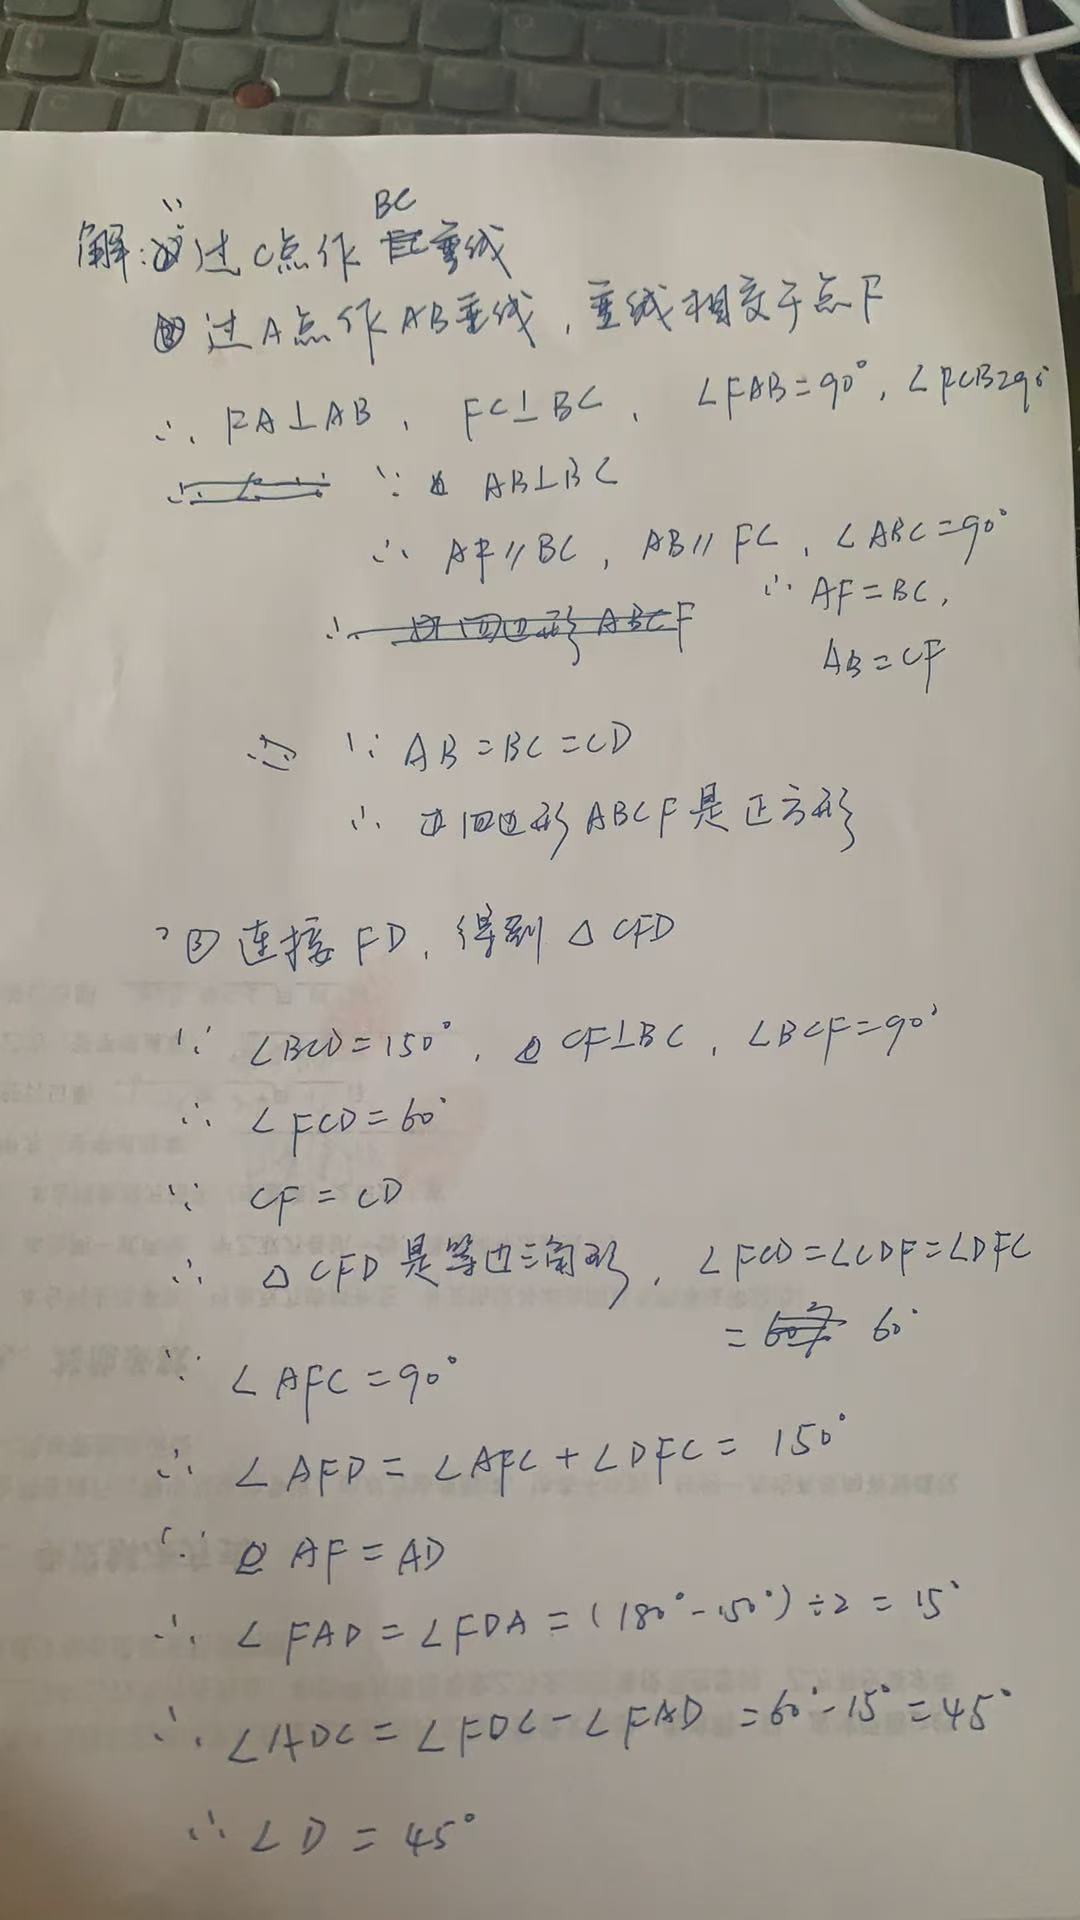 解:(1)过C点作BC垂线
②过A点作AB垂线,垂线相交于点F
∴ FA⊥AB, FC⊥BC, ∠FAB=90°, ∠FCB=90°
∵ AB⊥BC
∴ AF∥BC, AB∥FC, ∠ABC=90°
∴ AF=BC,
AB=CF
∵ AB=BC=CD
∴ 四边形ABCF是正方形
③连接FD,得到△CFD
∵ ∠BCD=150°, CF⊥BC, ∠BCF=90°
∴ ∠FCD=60°
∵ CF=CD
∴ △CFD是等边三角形, ∠FCD=∠CDF=∠DFC
=60°
∵ ∠AFC=90°
∴ ∠AFD=∠AFC+∠DFC=150°
∵ AF=AD
∴ ∠FAD=∠FDA=(180°-150°)÷2=15°
∴ ∠ADC=∠FDC-∠FAD=60°-15°=45°
∴ ∠D=45°